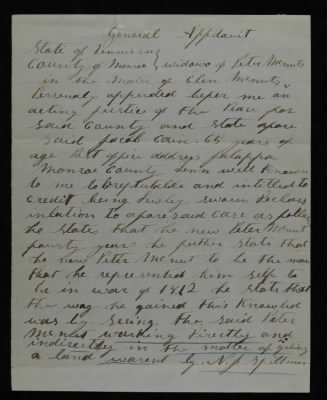 General Affidavit
State of Tennessee
County of Monroe widow of Peter Mcnuts
in the Mater of Elen Mcnuts
Personaly appeared befer me an
acting justice of the Peace for
Said County and State afore
said Jacob Cain 65 years of
age Post office address Jalappa
Monroe County Tenn well known
to me to be reputable and intitled to
Credit being Duly Swarn Declares
in lation to afore said Case as follows
he State that he new Peter Mcnut
fourty years he futher Stats that
he new Peter Mcnut to be the man
that he represented him Self to
be in war of 1812 he Stats that
the way he gained this Knowled
was by Seeing the said Peter
Mcnut working Directly and
indirectly in the matter of geting
a land warent by N. J. Spillman